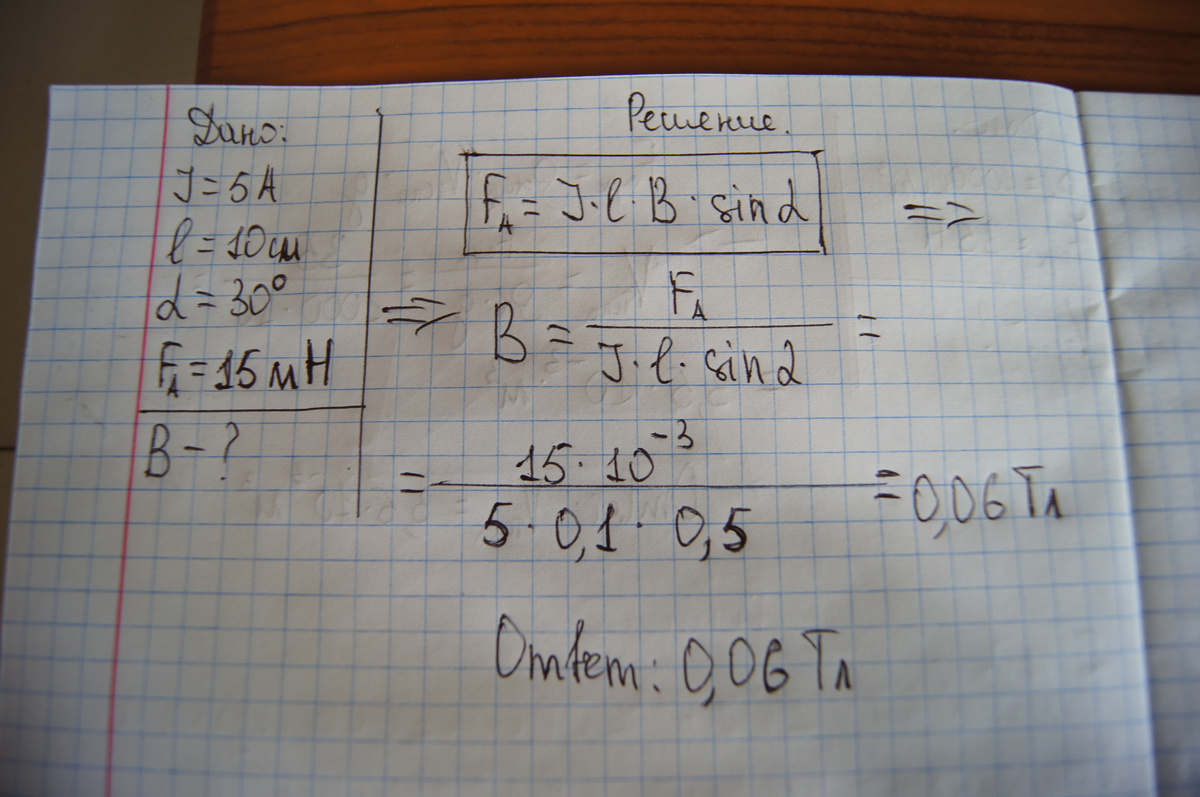 Дано:
J = 5 A
l = 10 см
α = 30°
F_A = 15 мН
B - ?
Решение.
F_A = J · l · B · sin α =>
=> B = F_A / (J · l · sin α) =
= 15 · 10^-3 / (5 · 0,1 · 0,5) = 0,06 Тл
Ответ: 0,06 Тл